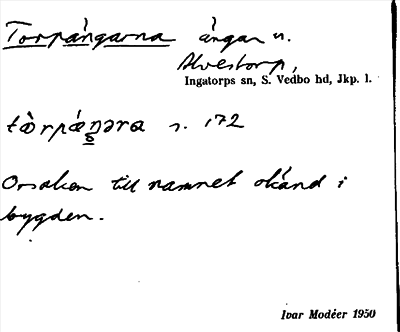 Torpångarna ångar n.
Alvestorp,
Ingatorps sn, S. Vedbo hd, Jkp. l.
tòrpáŋəra s. 172
Orsaken till namnet okänd i
bygden.
Ivar Modéer 1950